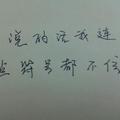 说的话我连
标点符号都不信